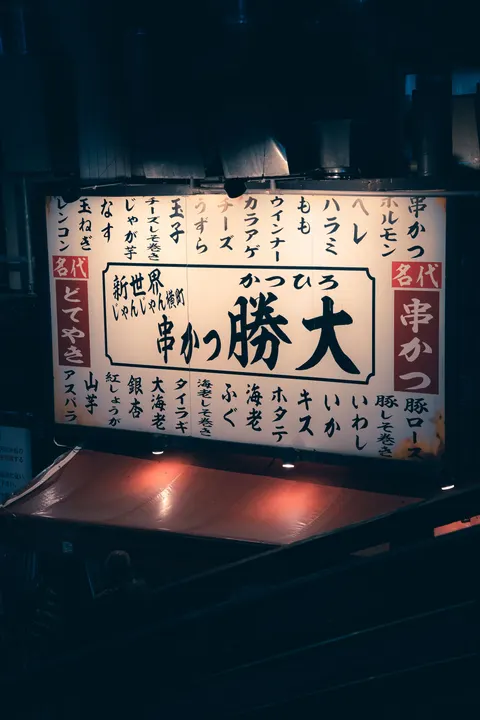 串かつ
ホルモン
ヘレ
ハラミ
もも
ウインナー
カラアゲ
チーズ
うずら
玉子
チーズしそ巻き
じゃが芋
なす
玉ねぎ
レンコン
名代
串かつ
新世界
じゃんじゃん横町
かつひろ
串かつ勝大
名代
どてやき
豚ロース
豚しそ巻き
いわし
いか
キス
ホタテ
海老
ふぐ
海老しそ巻き
タイラギ
大海老
銀杏
紅しょうが
山芋
アスパラ